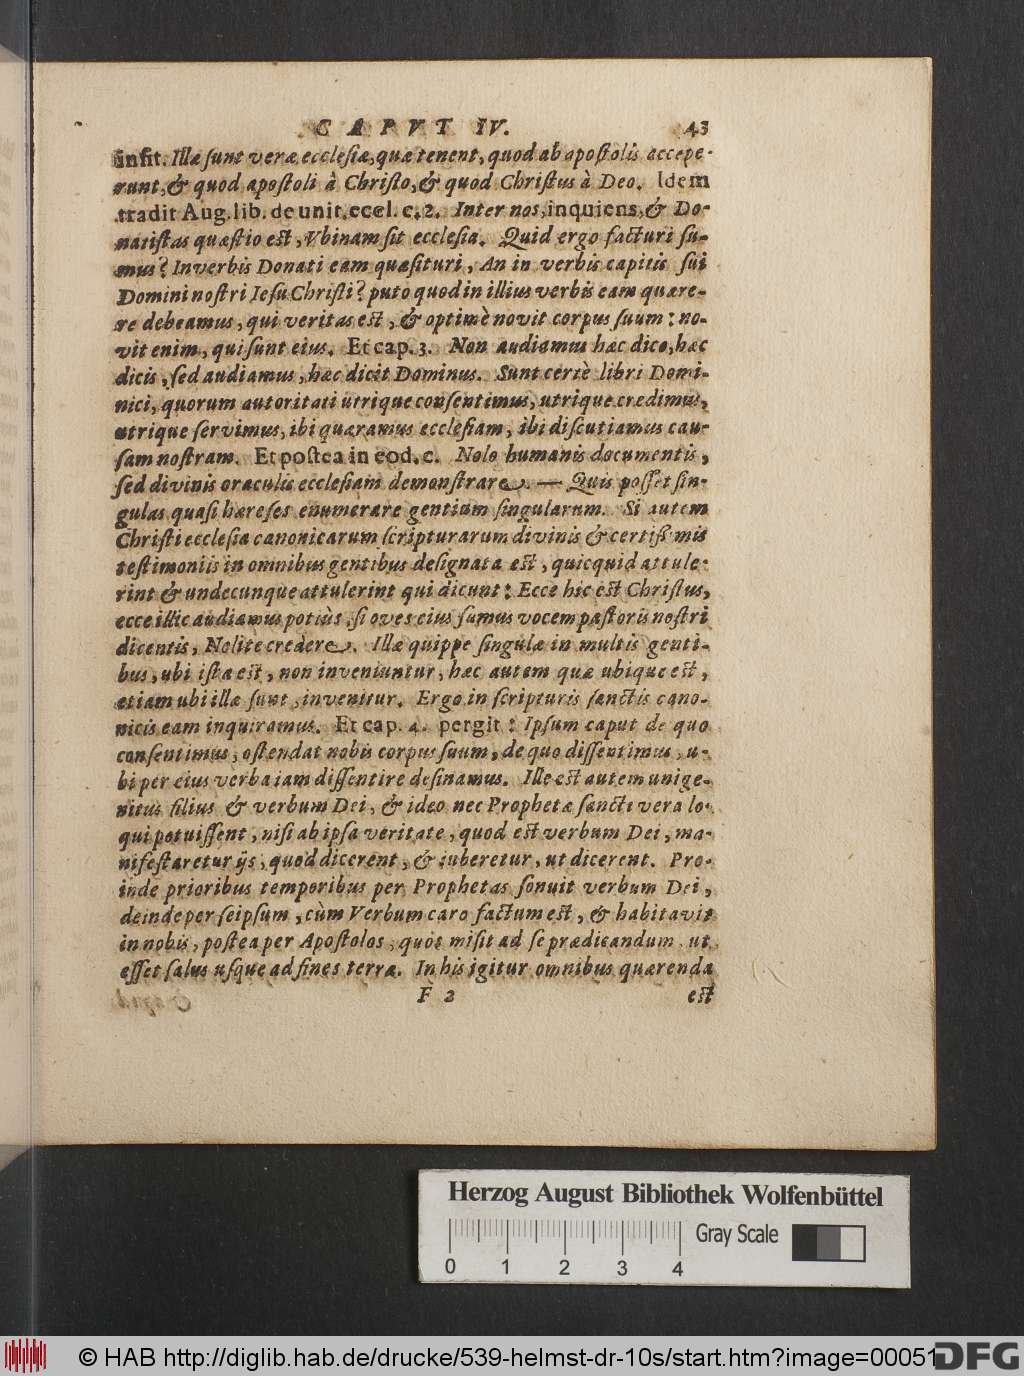 CAPVT IV. 43
infit. Illæ ſunt veræ eccleſiæ, quæ tenent, quod ab apoſtolis accepe-
runt, & quod apoſtoli à Chriſto, & quod Chriſtus à Deo. Idem
tradit Aug. lib. de unit. eccl. c. 2. Inter nos, inquiens, & Do-
natiſtas quæſtio eſt, Vbinam ſit eccleſia. Quid ergo facturi ſu-
mus? In verbis Donati eam quæſituri, An in verbis capitis ſui
Domini noſtri Ieſu Chriſti? puto quod in illius verbis eam quære-
re debeamus, qui veritas eſt, & optimè novit corpus ſuum: no-
vit enim, qui ſunt eius. Et cap. 3. Non audiamus hæc dico, hæc
dicis, ſed audiamus, hæc dicit Dominus. Sunt certè libri Domi-
nici, quorum autoritati utrique conſentimus, utrique credimus,
utrique ſervimus, ibi quæramus eccleſiam, ibi diſcutiamus cau-
ſam noſtram. Et poſtea in eod. c. Nolo humanis documentis,
ſed divinis oraculis eccleſiam demonſtrare. — Quis poſſet ſin-
gulas quaſi hæreſes enumerare gentium ſingularum. Si autem
Chriſti eccleſia canonicarum ſcripturarum divinis & certiſſimis
teſtimoniis in omnibus gentibus deſignata eſt, quicquid attule-
rint & undecunque attulerint qui dicunt: Ecce hic eſt Chriſtus,
ecce illic audiamus potiùs, ſi oves eius ſumus vocem paſtoris noſtri
dicentis, Nolite credere. Illæ quippe ſingulæ in multis genti-
bus, ubi iſta eſt, non inveniuntur, hæc autem quæ ubique eſt,
etiam ubi illæ ſunt, invenitur. Ergo in ſcripturis ſanctis cano-
nicis eam inquiramus. Et cap. 4. pergit: Ipſum caput de quo
conſentimus, oſtendat nobis corpus ſuum, de quo diſſentimus, u-
bi per eius verba iam diſſentire deſinamus. Ille eſt autem unige-
nitus filius & verbum Dei, & ideo nec Prophetæ ſancti vera lo-
qui potuiſſent, niſi ab ipſa veritate, quod eſt verbum Dei, ma-
nifeſtaretur ijs, quod dicerent, & iuberetur, ut dicerent. Pro-
inde prioribus temporibus per Prophetas ſonuit verbum Dei,
deinde per ſeipſum, cùm Verbum caro factum eſt, & habitavit
in nobis, poſtea per Apoſtolos, quos miſit ad ſe prædicandum, ut
eſſet ſalus uſque ad fines terræ. In his igitur omnibus quærenda
F 2 eſt
Herzog August Bibliothek Wolfenbüttel
Gray Scale
0 1 2 3 4
© HAB http://diglib.hab.de/drucke/539-helmst-dr-10s/start.htm?image=00051
DFG